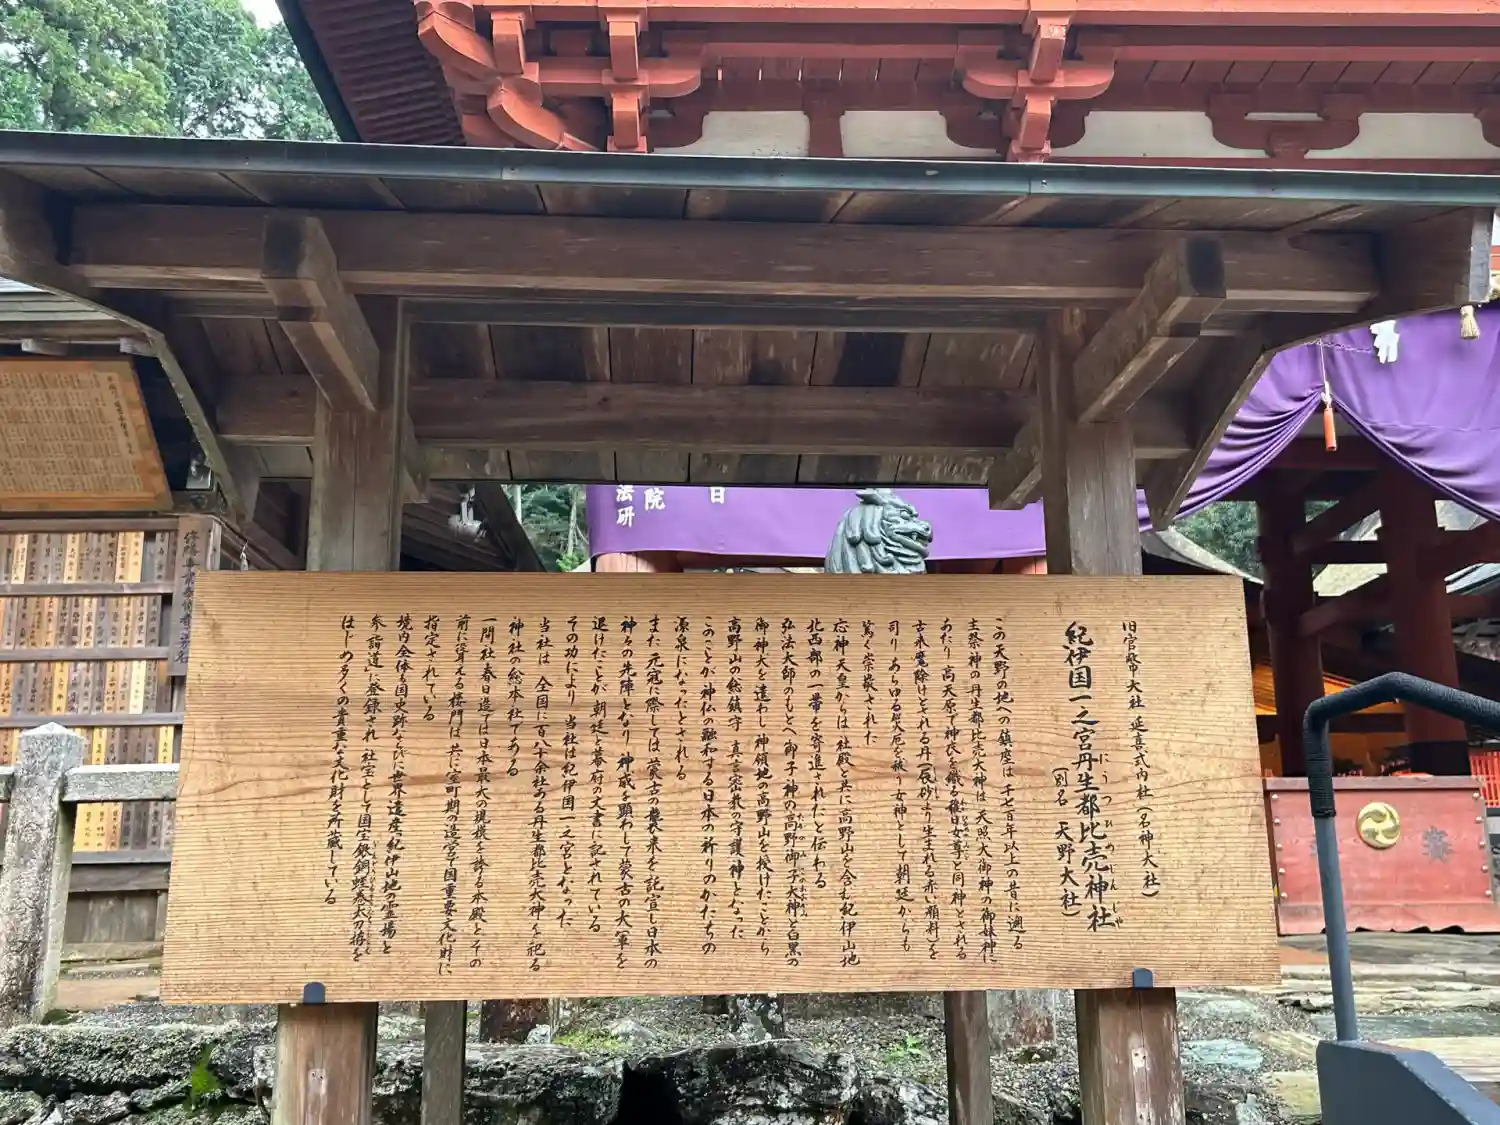 旧官幣大社 延喜式内社(名神大社)
紀伊国一之宮丹生都比売神社
にうつひめじんじゃ
(別名 天野大社)
この天野の地への鎮座は千七百年以上の昔に遡る
主祭神の丹生都比売大神は天照大御神の御妹神に
あたり 高天原で神衣を織る稚日女尊と同神とされる
古来魔除けとされる丹(辰砂より生まれる赤い顔料)を
司り あらゆる災厄を祓う女神として朝廷からも
篤く崇敬された
応神天皇からは 社殿と共に高野山を含む紀伊山地
北西部の一帯を寄進されたと伝わる
弘法大師のもとへ御子神の高野御子大神と白黒の
御神犬を遣わし 神領地の高野山を授けたことから
高野山の総鎮守 真言密教の守護神となった
このことが 神仏の融和する日本の祈りのかたちの
源泉になったとされる
また 元寇に際しては 蒙古の襲来を託宣し日本の
神々の先陣となり 神威を顕わして蒙古の大軍を
退けたことが 朝廷や幕府の文書に記されている
その功により 当社は紀伊国一之宮となった
当社は 全国に百八十余社ある丹生都比売大神を祀る
神社の総本社である
一間社春日造では日本最大の規模を誇る本殿とその
前に聳える楼門は 共に室町期の造営で国重要文化財に
指定されている
境内全体も国史跡ならびに世界遺産「紀伊山地の霊場と
参詣道」に登録され 社宝として国宝銀銅蛭巻太刀拵を
はじめ 多くの貴重な文化財を所蔵している
日
院
法研